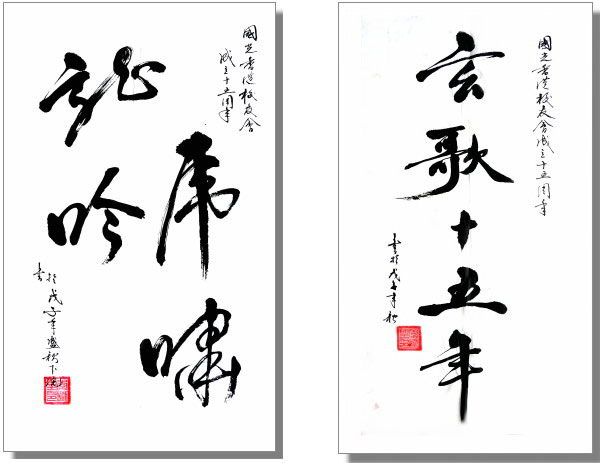 國立香港校友會
成立十五周年
虎嘯
龍吟
書於戊子年盛秋
國立香港校友會成立十五周年
玄歌十五年
書於戊子年秋